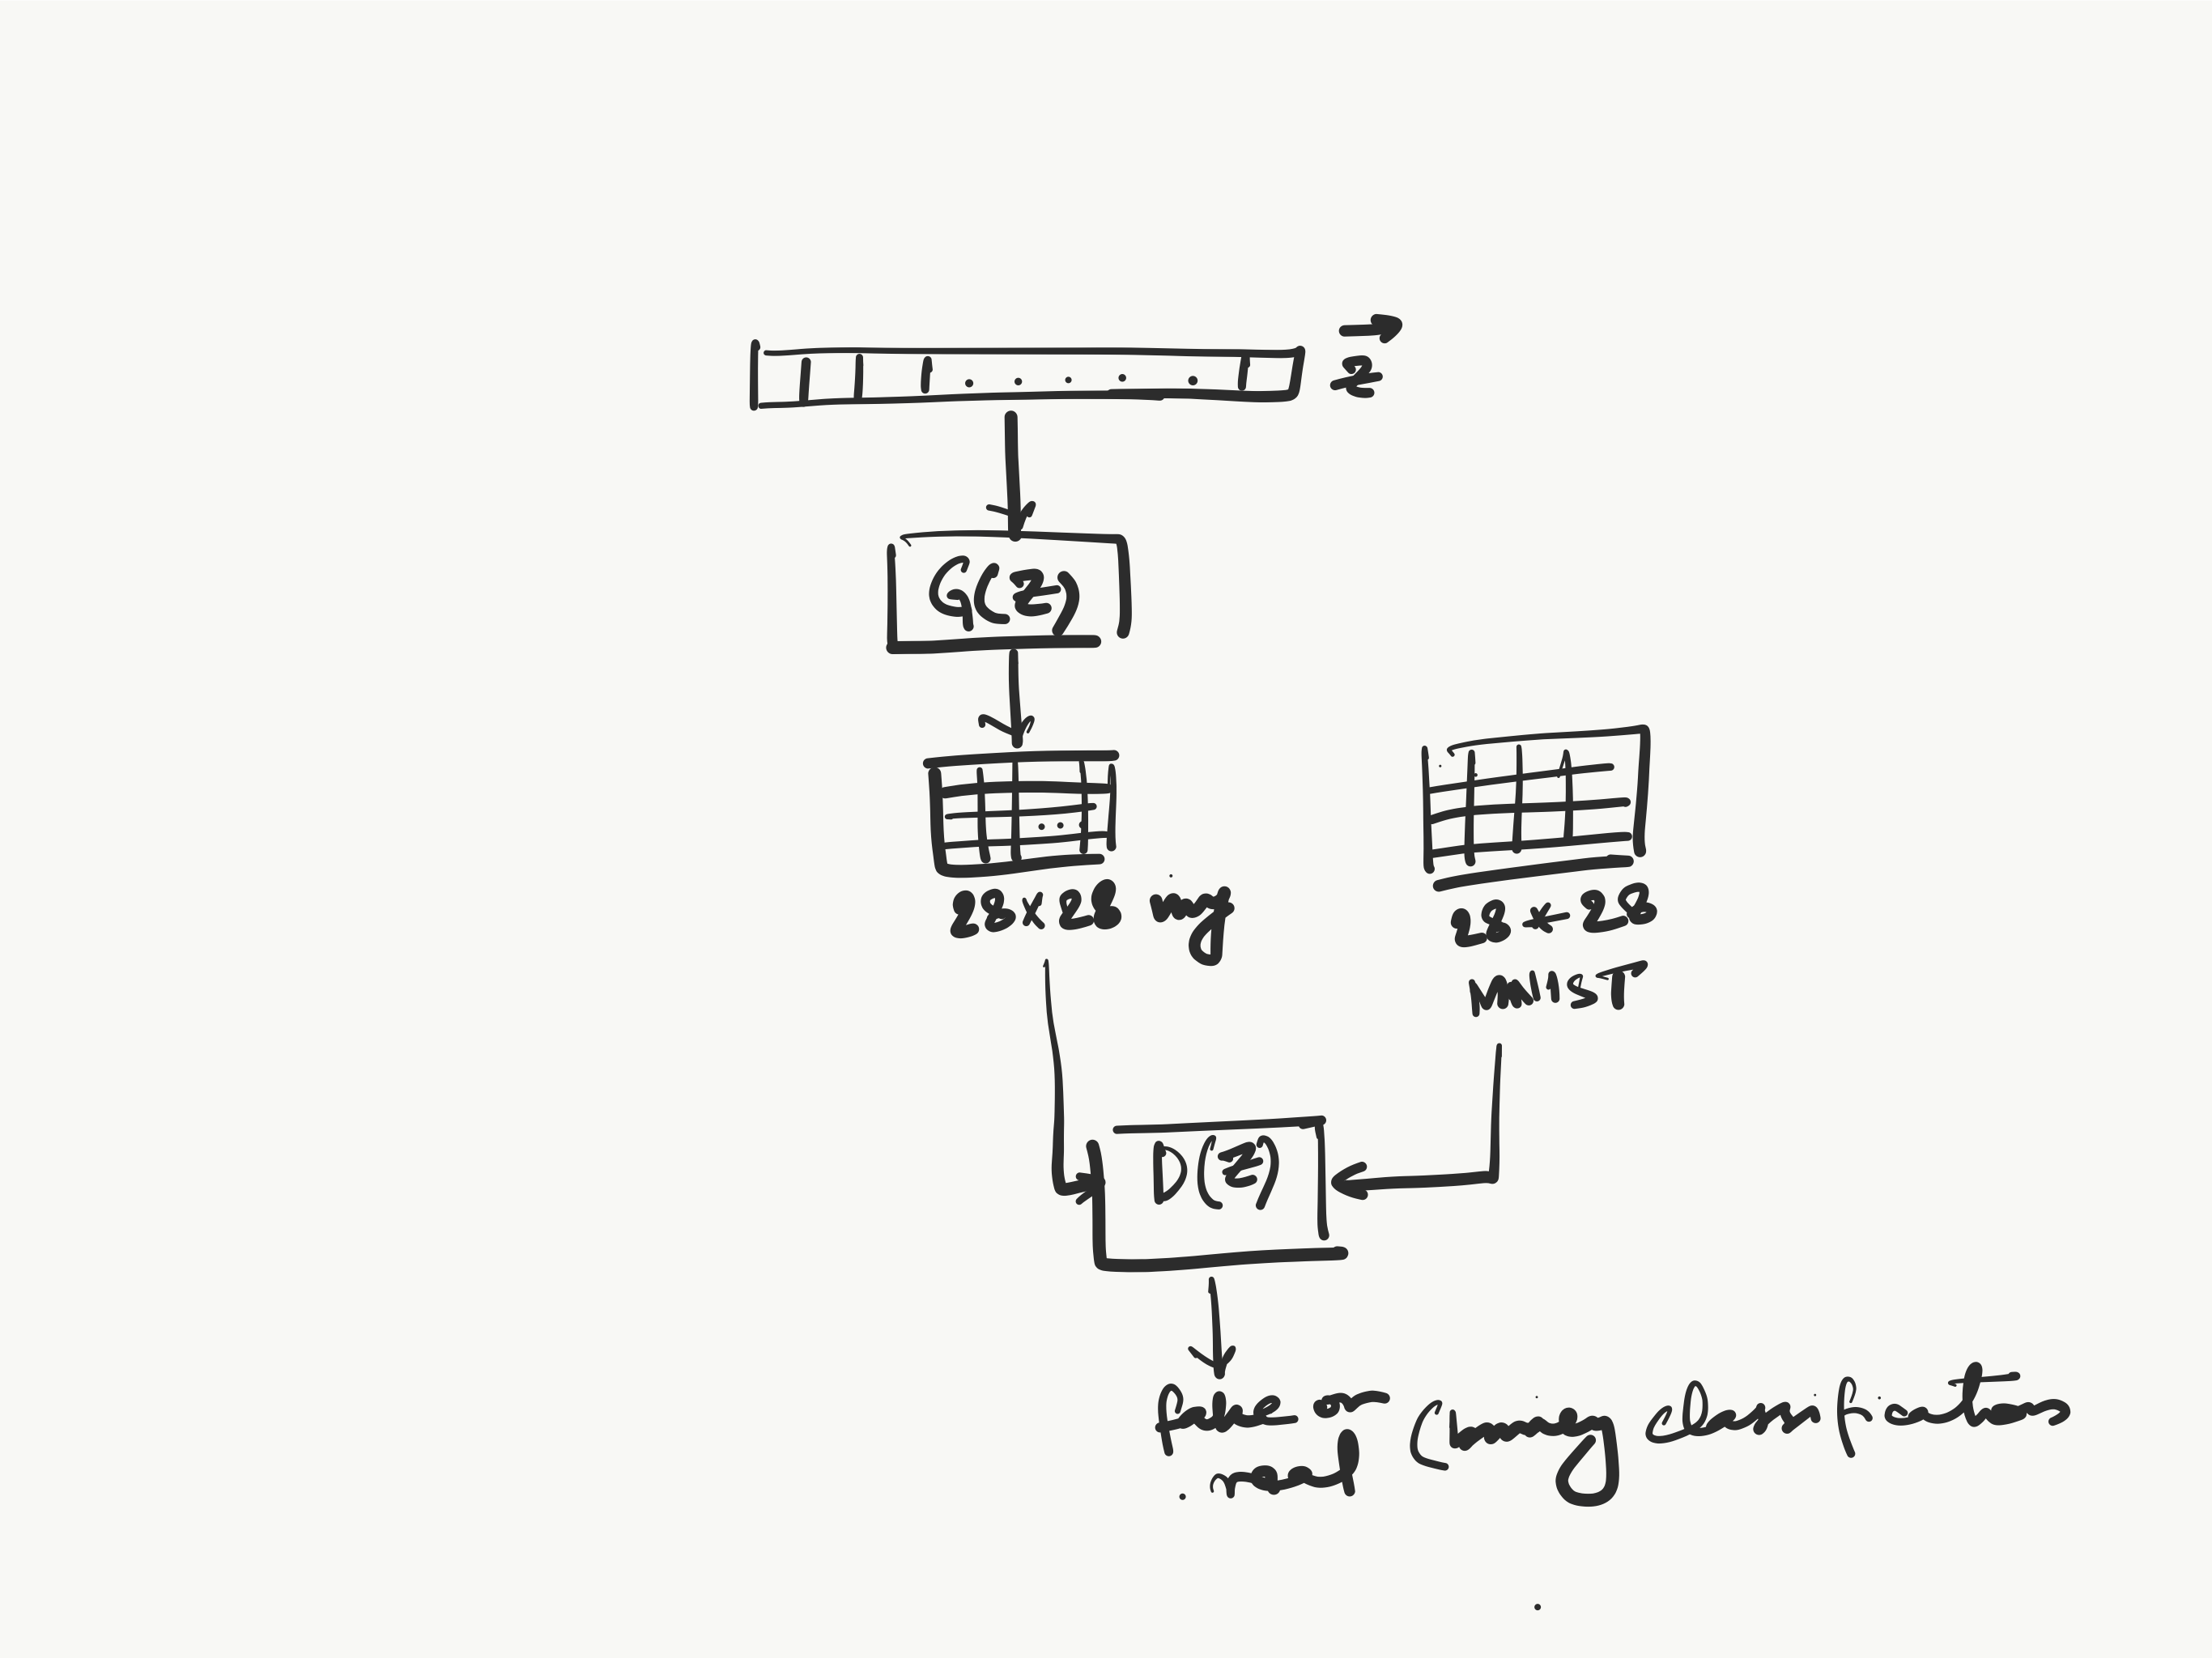 z
G(z)
28x28 img
28*28
MNIST
D(z)
fake or
real
(binary classification